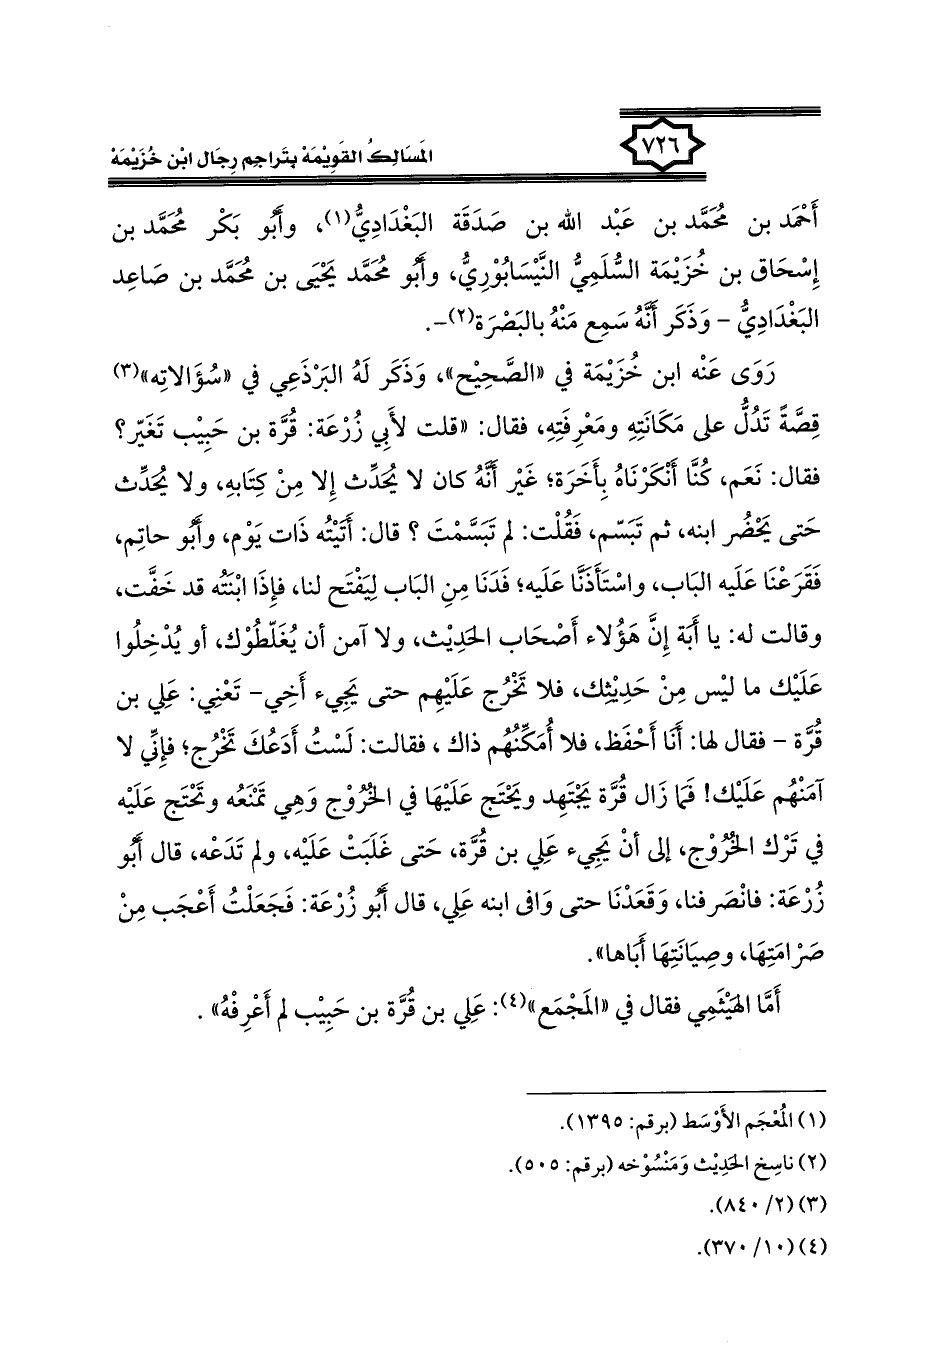 ٧٢٦
المَسَالِكُ القَوِيْمَةْ بِتَراجِمِ رِجَال ابْن خُزَيْمَةْ
أَحْمَد بن مُحَمَّد بن عَبْد الله بن صَدَقَة البَغْدَادِيُّ(١)، وأَبُو بَكْر مُحَمَّد بن
إِسْحَاق بن خُزَيْمَة السُّلَمِيُّ النَّيْسَابُوْرِيُّ، وأَبُو مُحَمَّد يَحْيَى بن مُحَمَّد بن صَاعِد
البَغْدَادِيُّ – وَذَكَر أَنَّهُ سَمِع مَنْهُ بالبَصْرَة(٢)–.
رَوَى عَنْه ابن خُزَيْمَة في «الصَّحِيْح»، وَذَكَر لَهُ البَرْذَعِي في «سُؤَالاتِه»(٣)
قِصَّةً تَدُلُّ على مَكَانَتِهِ ومَعْرِفَتِهِ، فقال: «قلت لأَبِي زُرْعَة: قُرَّة بن حَبِيْب تَغَيّر؟
فقال: نَعَم، كُنَّا أَنْكَرْنَاهُ بِأَخَرَة؛ غَيْر أَنَّهُ كان لا يُحَدِّث إِلا مِنْ كِتَابهِ، ولا يُحَدِّث
حَتى يَحْضُر ابنه، ثم تَبَسّم، فَقُلْت: لم تَبَسَّمْتَ ؟ قال: أَتَيْتُه ذَات يَوْم، وأَبُو حاتِم،
فَقَرَعْنَا عَلَيه البَاب، واسْتَأذَنَّا عَلَيه؛ فَدَنَا مِنِ البَاب لِيَفْتَح لنا، فإِذَا ابْنَتُه قد خَفَّت،
وقالت له: يا أَبَة إِنَّ هَؤُلاء أَصْحَاب الحَدِيْث، ولا آمن أن يُغَلِّطُوْك، أو يُدْخِلُوا
عَلَيْك ما لَيْس مِنْ حَدِيْثِك، فلا تَخْرُج عَلَيْهِم حتى يَجِيء أَخِي– تَعْنِي: عَلِي بن
قُرَّة – فقال لها: أَنَا أَحْفَظ، فلا أُمَكِّنُهُم ذاك ، فقالت: لَسْتُ أَدَعُكَ تَخْرُج؛ فإِنِّي لا
آمَنْهُم عَلَيْك! فَمَا زَال قُرَّة يَجْتَهِد ويَحْتَج عَلَيْهَا في الخُرُوْج وَهِي تَمْنَعُه وتَحْتَج عَلَيْه
في تَرْك الخُرُوْج، إلى أَنْ يَجِيء عَلِي بن قُرَّة، حَتى غَلَبَتْ عَلَيْه، ولم تَدَعْه، قال أَبُو
زُرْعَة: فانْصَرفنا، وَقَعَدْنَا حتى وَافى ابنه عَلِي، قال أَبُو زُرْعَة: فَجَعَلْتُ أَعْجَب مِنْ
صَرَامَتِهَا، وصِيَانَتِهَا أَبَاها».
أَمَّا الهَيْثَمِي فقال في «المَجْمَع»(٤): عَلِي بن قُرَّة بن حَبِيْب لم أَعْرِفْهُ» .
(١) المُعْجَم الأَوْسَط (برقم: ١٣٩٥).
(٢) ناسِخ الحَدِيْث وَمَنْسُوْخه (برقم: ٥٠٥).
(٣) (٢/ ٨٤٠).
(٤) (١٠/ ٣٧٠).